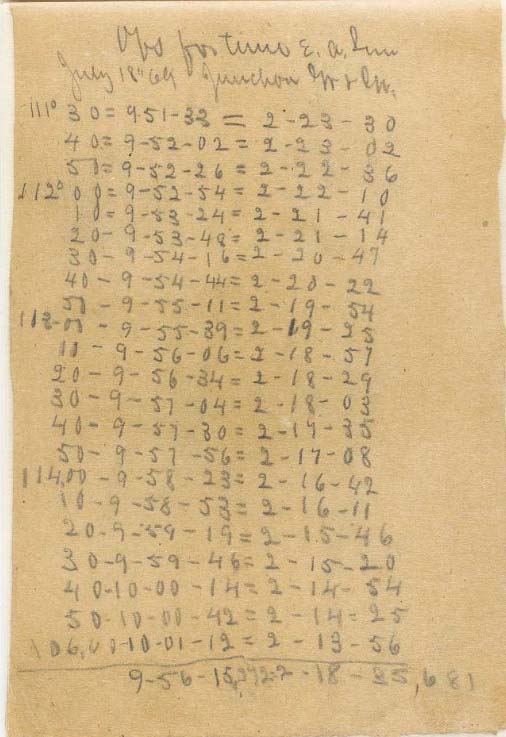 Obs for time E. a. Sun
July 18" 69 Junction Gr & Gr.
111° 30 = 9 51-33 = 2-23-30
40 = 9-52-02 = 2-23-02
50 = 9-52-26 = 2-22-36
112° 00 = 9-52-54 = 2-22-10
10 = 9-53-24 = 2-21-41
20 - 9-53-48 = 2-21-14
30 - 9-54-16 = 2-20-47
40 - 9-54-44 = 2-20-22
50 - 9-55-11 = 2-19-54
113-00 - 9-55-39 = 2-19-25
10 - 9-56-06 = 2-18-57
20 - 9-56-34 = 2-18-29
30 - 9-57-04 = 2-18-03
40 - 9-57-30 = 2-17-35
50 - 9-57-56 = 2-17-08
114,00 - 9-58-23 = 2-16-42
10 - 9-58-53 = 2-16-11
20-9-59-19 = 2-15-46
30-9-59-46 = 2-15-20
40-10-00-14 = 2-14-54
50-10-00-42 = 2-14-25
00-10-01-12 = 2-13-56
9-56-15,272=2-18-35,681